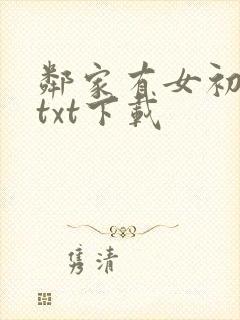 鄰家有女初
txt下載
隽清